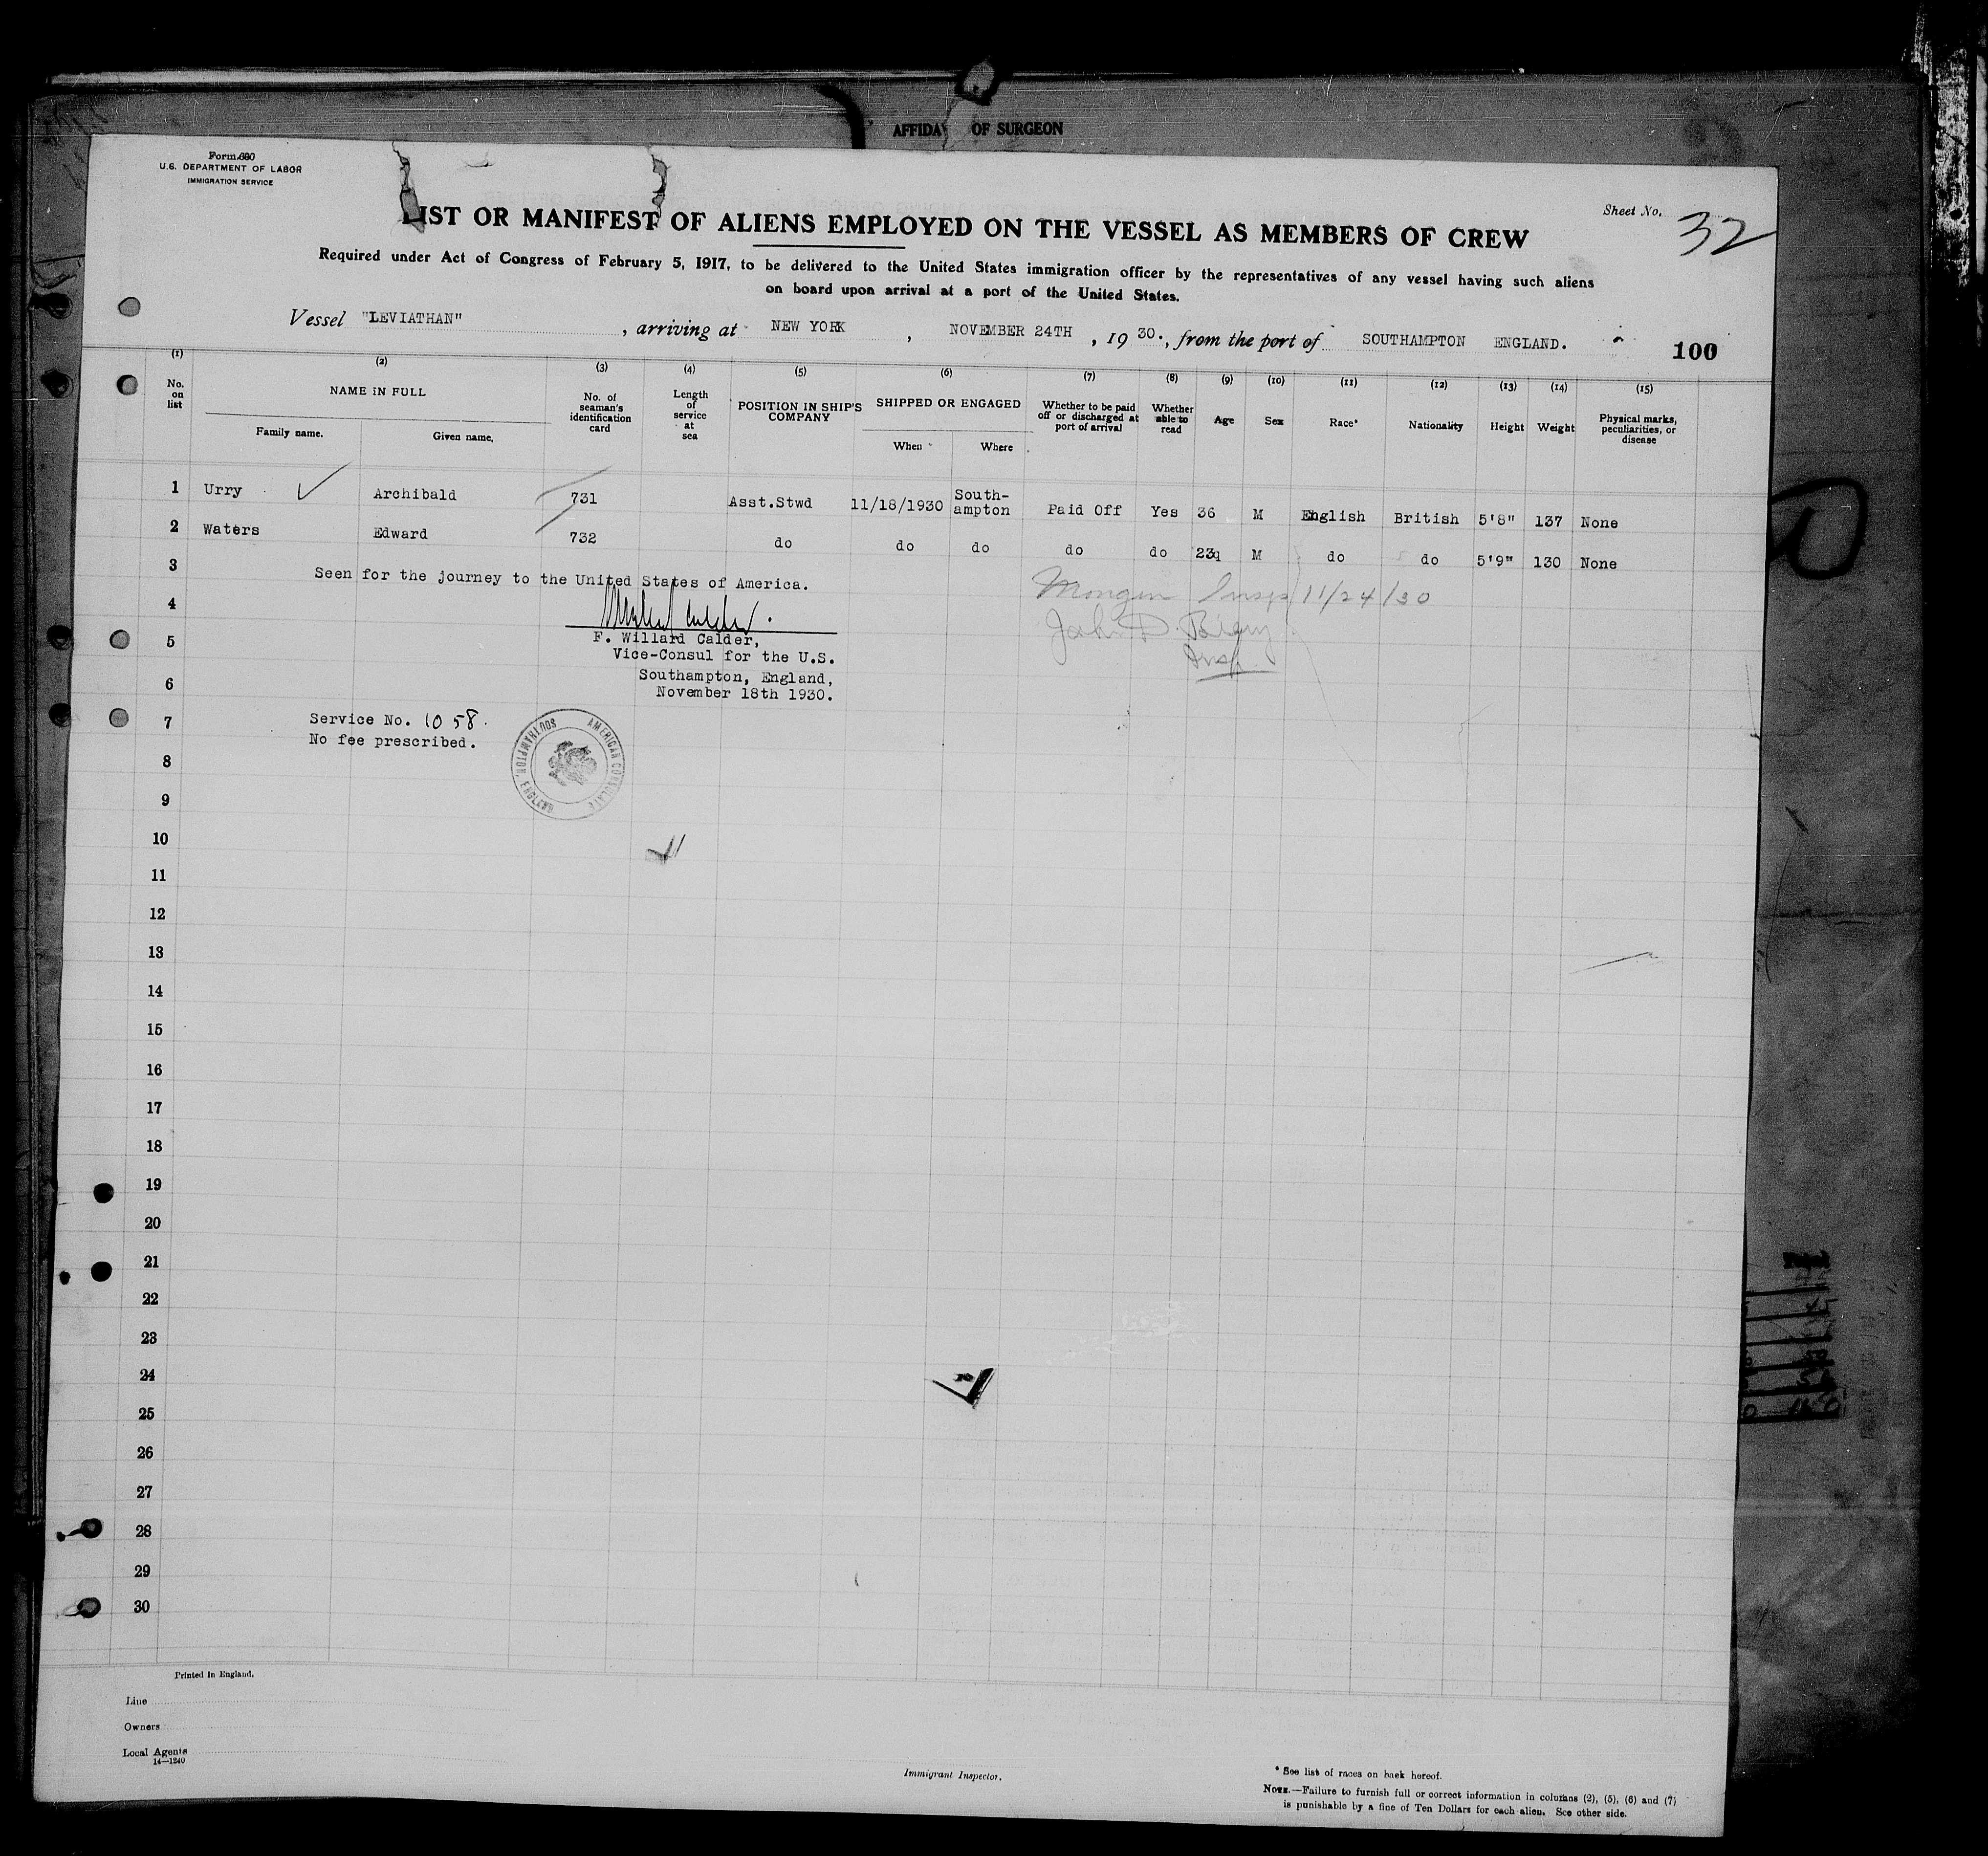 AFFIDA OF SURGEON
Form 680
U.S. DEPARTMENT OF LABOR
IMMIGRATION SERVICE
Sheet No. 32
LIST OR MANIFEST OF ALIENS EMPLOYED ON THE VESSEL AS MEMBERS OF CREW
Required under Act of Congress of February 5, 1917, to be delivered to the United States immigration officer by the representatives of any vessel having such aliens
on board upon arrival at a port of the United States.
Vessel "LEVIATHAN", arriving at NEW YORK, NOVEMBER 24TH, 1930., from the port of SOUTHAMPTON ENGLAND.
100
(1) (2) (3) (4) (5) (6) (7) (8) (9) (10) (11) (12) (13) (14) (15)
No. on list NAME IN FULL Family name. Given name. No. of seaman's identification card Length of service at sea POSITION IN SHIP'S COMPANY SHIPPED OR ENGAGED When Where Whether to be paid off or discharged at port of arrival Whether able to read Age Sex Race* Nationality Height Weight Physical marks, peculiarities, or disease
1 Urry Archibald 731 Asst.Stwd 11/18/1930 South-ampton Paid Off Yes 36 M English British 5'8" 137 None
2 Waters Edward 732 do do do do do 23 M do do 5'9" 130 None
3 Seen for the journey to the United States of America.
Insp 11/24/30
4
John D.
5 F. Willard Calder,
Vice-Consul for the U.S.
Insp
Southampton, England,
6 November 18th 1930.
7 Service No. 1058.
No fee prescribed.
AMERICAN CONSULATE
SOUTHAMPTON, ENGLAND
8
9
10
11
12
13
14
15
16
17
18
19
20
21
22
23
24
25
26
27
28
29
30
Printed in England.
Line
Owners
Local Agents
14—1240
Immigrant Inspector.
* See list of races on back hereof.
NOTE.—Failure to furnish full or correct information in columns (2), (5), (6) and (7)
is punishable by a fine of Ten Dollars for each alien. See other side.